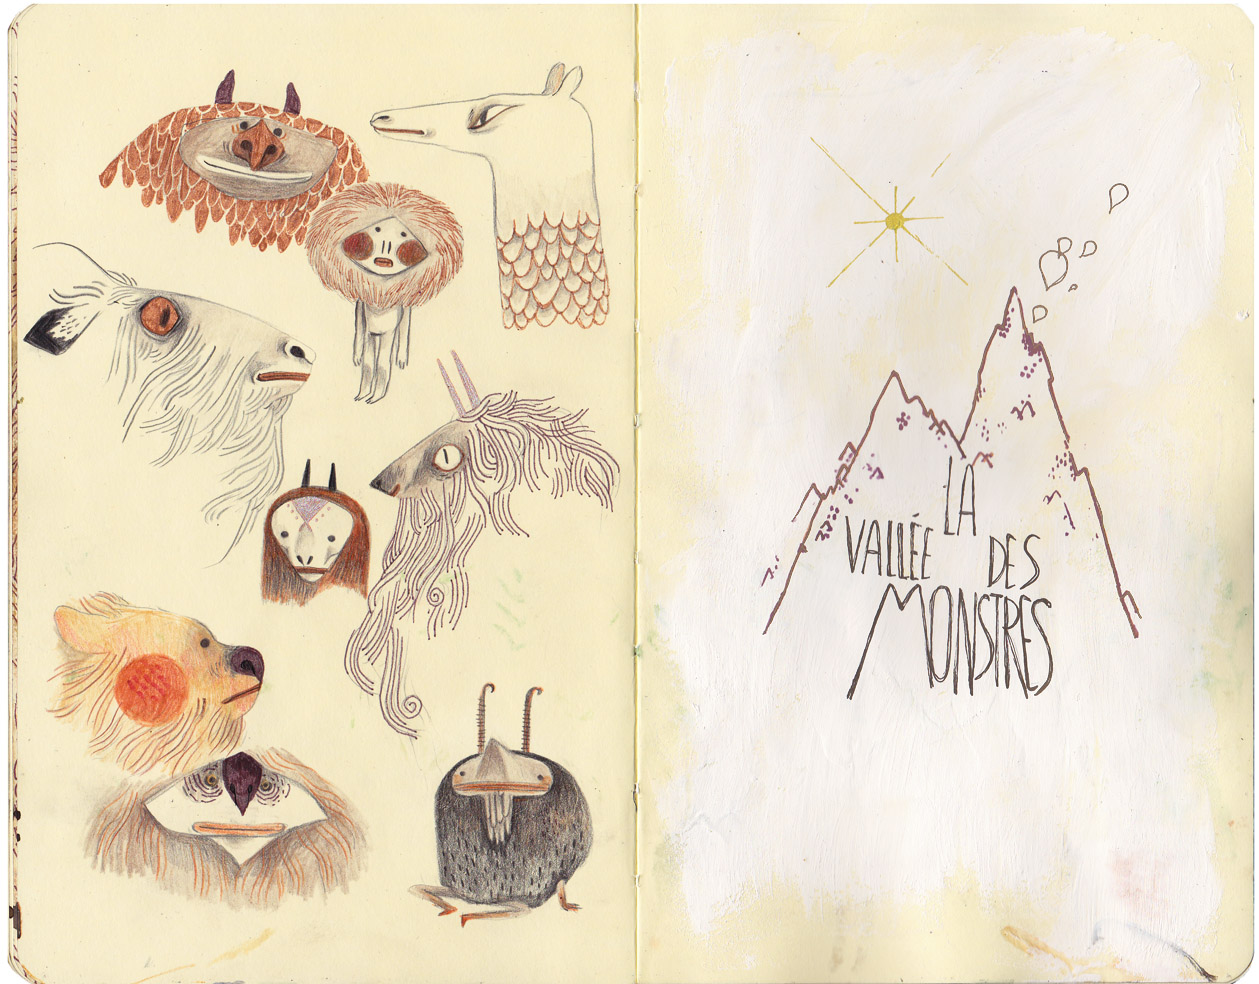 LA
VALLÉE DES
MONSTRES